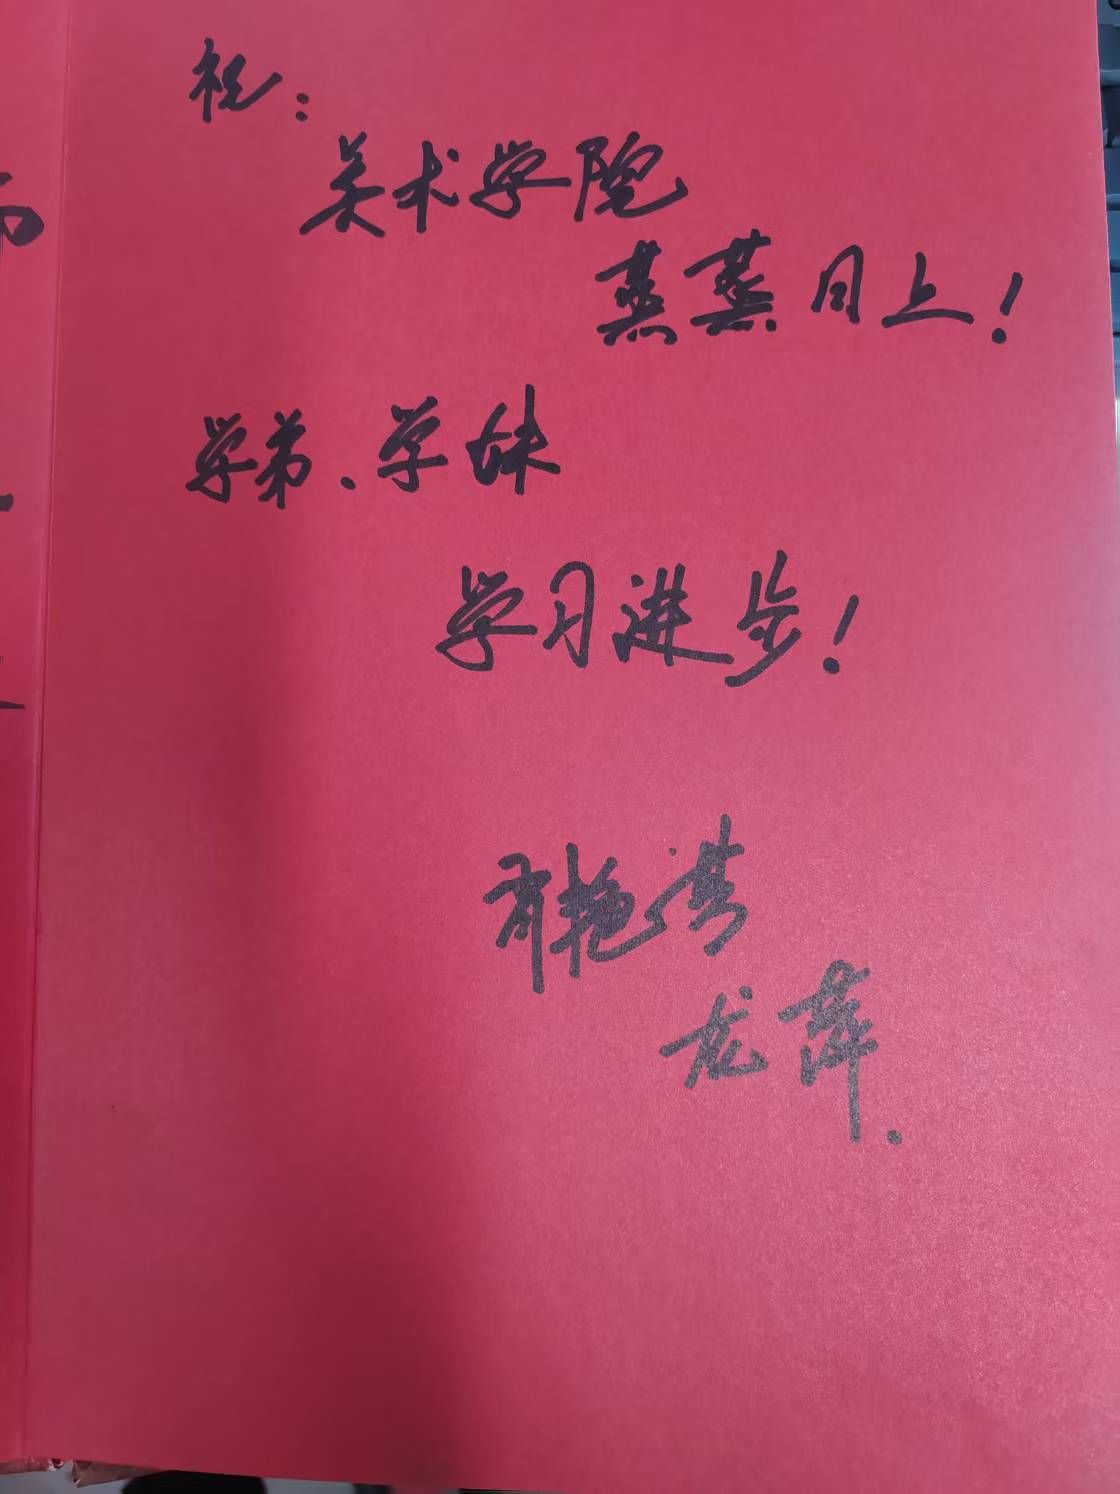 祝：
美术学院
蒸蒸日上！
学弟、学妹
学习进步！
龙萍.